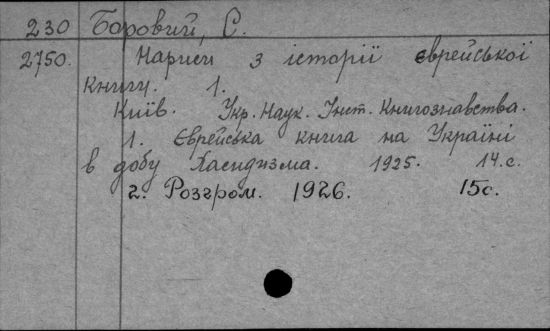 230 Боровий, С.
2750. Нариси з історії єврейської
книги. 1.
Київ. Укр. Наук. Інст. Книгознавства.
1. Єврейська книга на Україні
в добу Хасидизма. 1925. 14.с.
2. Розгром. 1926. 15с.